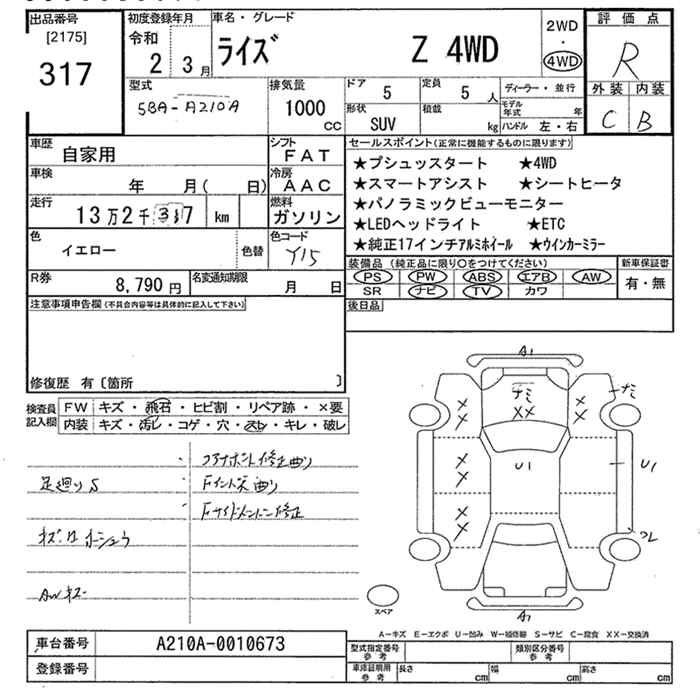 出品番号
[2175]
317
初度登録年月
令和
2 3月
車名・グレード
ライズ Z 4WD
2WD
・
4WD
評価点
R
外装 内装
C B
型式
5BA-A210A
排気量
1000
CC
ドア 5
定員 5 人
形状
SUV
積載
kg
ディーラー・並行
モデル年式 年
ハンドル 左・右
車歴
自家用
シフト
FAT
車検
年 月( 日)
冷房
AAC
走行
13万2千337 km
燃料
ガソリン
色
イエロー
色替
色コード
Y15
R券
8,790円
名変通知期限
月 日
セールスポイント(正常に機能するものに限ります)
★プシュッスタート ★4WD
★スマートアシスト ★シートヒータ
★パノラミックビューモニター
★LEDヘッドライト ★ETC
★純正17インチアルミホイール ★ウインカーミラー
装備品(純正品に限り○をつけてください)
PS PW ABS エアB AW
SR ナビ TV カワ
新車保証書
有・無
後日品
注意事項申告欄(不具合内容等は具体的に記入して下さい)
修復歴 有〔箇所 〕
検査員記入欄
FW キズ・飛石・ヒビ割・リペア跡・×要
内装 キズ・汚レ・コゲ・穴・スレ・キレ・破レ
足廻りS
AWキズ
A1
ナミ
XX
ナミ
X X
X X
X X
X X
U1
U1
A1
スペア
A-キズ E-エクボ U-凹み W-補修跡 S-サビ C-腐食 XX-交換済
車台番号 A210A-0010673
登録番号
型式指定番号参考
類別区分番号参考
車庫証明用参考 長さ cm 幅 cm 高さ cm